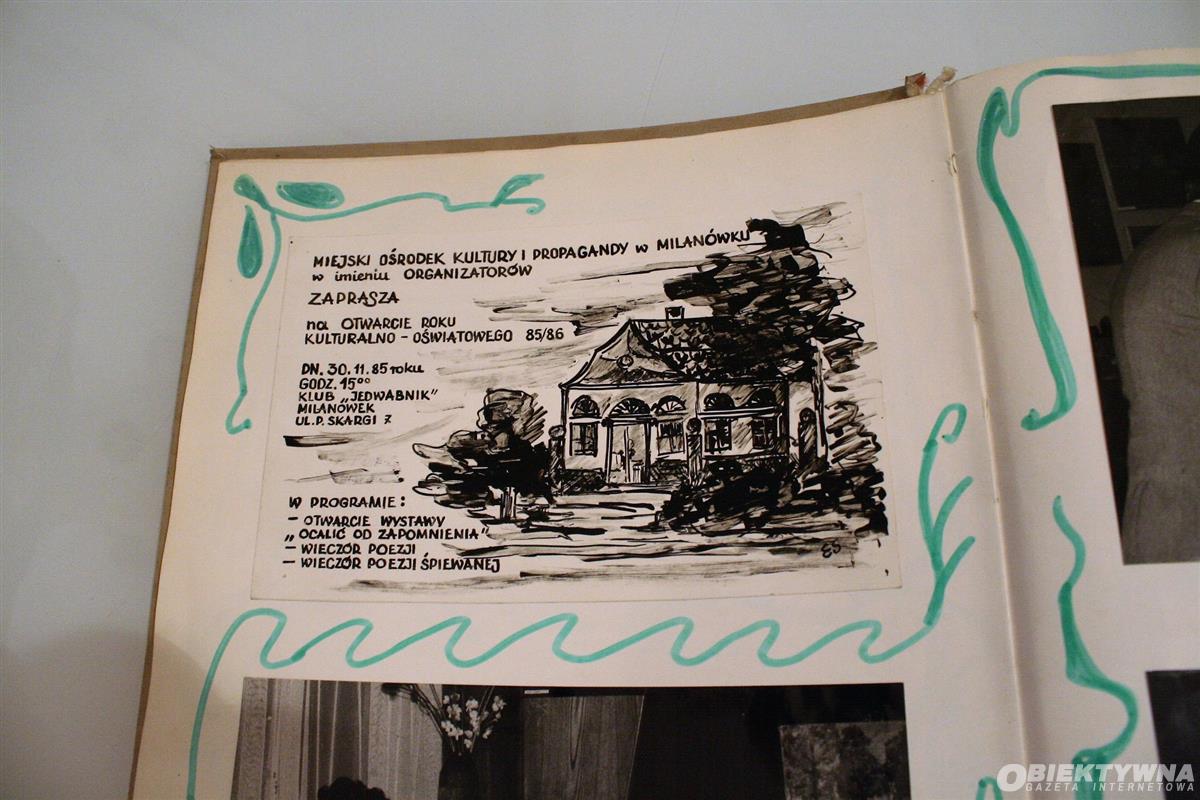 MIEJSKI OŚRODEK KULTURY I PROPAGANDY w MILANÓWKU
w imieniu ORGANIZATORÓW
ZAPRASZA
na OTWARCIE ROKU
KULTURALNO - OŚWIATOWEGO 85/86
DN. 30.11.85 roku
GODZ. 15⁰⁰
KLUB „JEDWABNIK"
MILANÓWEK
UL. P. SKARGI 7
W PROGRAMIE:
- OTWARCIE WYSTAWY
„OCALIĆ OD ZAPOMNIENIA"
- WIECZÓR POEZJI
- WIECZÓR POEZJI ŚPIEWANEJ
ES
OBIEKTYWNA
GAZETA INTERNETOWA